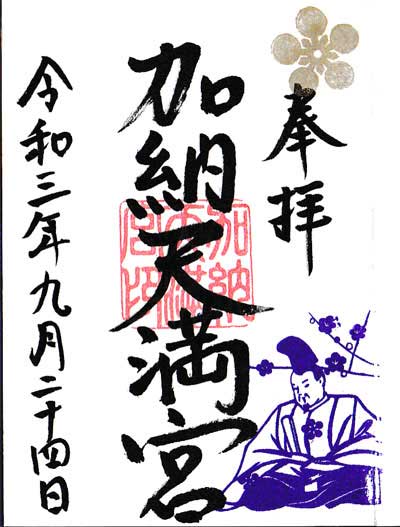 奉拝
加納天満宮
加納天満宮印
令和三年九月二十四日